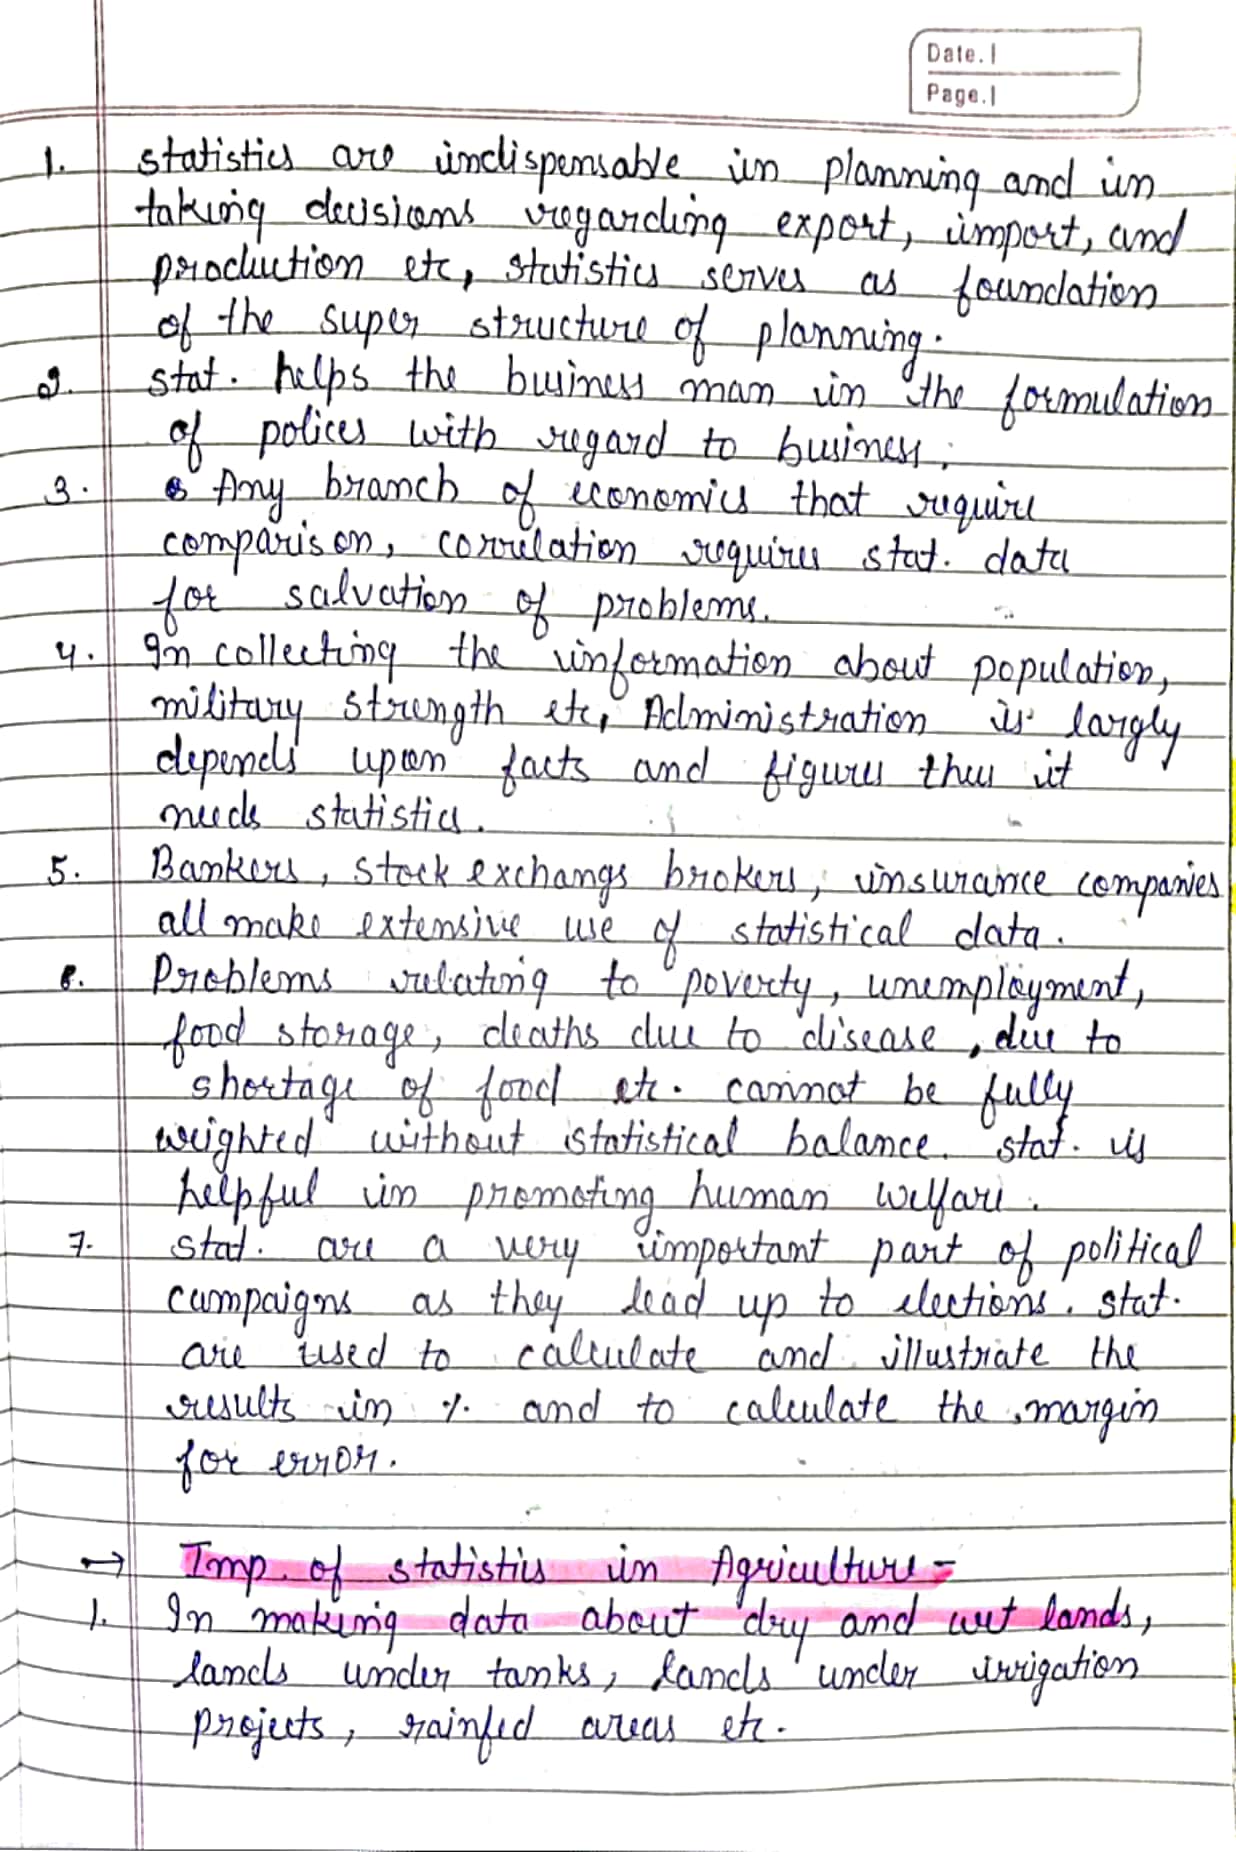 Date.
Page.
1. statistics are indispensable in planning and in
taking decisions regarding export, import, and
production etc, statistics serves as foundation
of the super structure of planning.
2. stat. helps the business man in the formulation
of polices with regard to business.
3. Any branch of economics that require
comparison, correlation requires stat. data
for salvation of problems.
4. In collecting the information about population,
military strength etc, Administration is largly
depends upon facts and figures thus it
needs statistics.
5. Bankers, stock exchangs brokers, insurance companies
all make extensive use of statistical data.
6. Problems relating to poverty, unemployment,
food storage, deaths due to disease, due to
shortage of food etc. cannot be fully
weighted without statistical balance. stat. is
helpful in promoting human welfare.
7. stat. are a very important part of political
campaigns as they lead up to elections. stat.
are used to calculate and illustrate the
results in % and to calculate the margin
for error.
→ Imp. of statistics in Agriculture -
1. In making data about dry and wet lands,
lands under tanks, lands under irrigation
projects, rainfed areas etc.